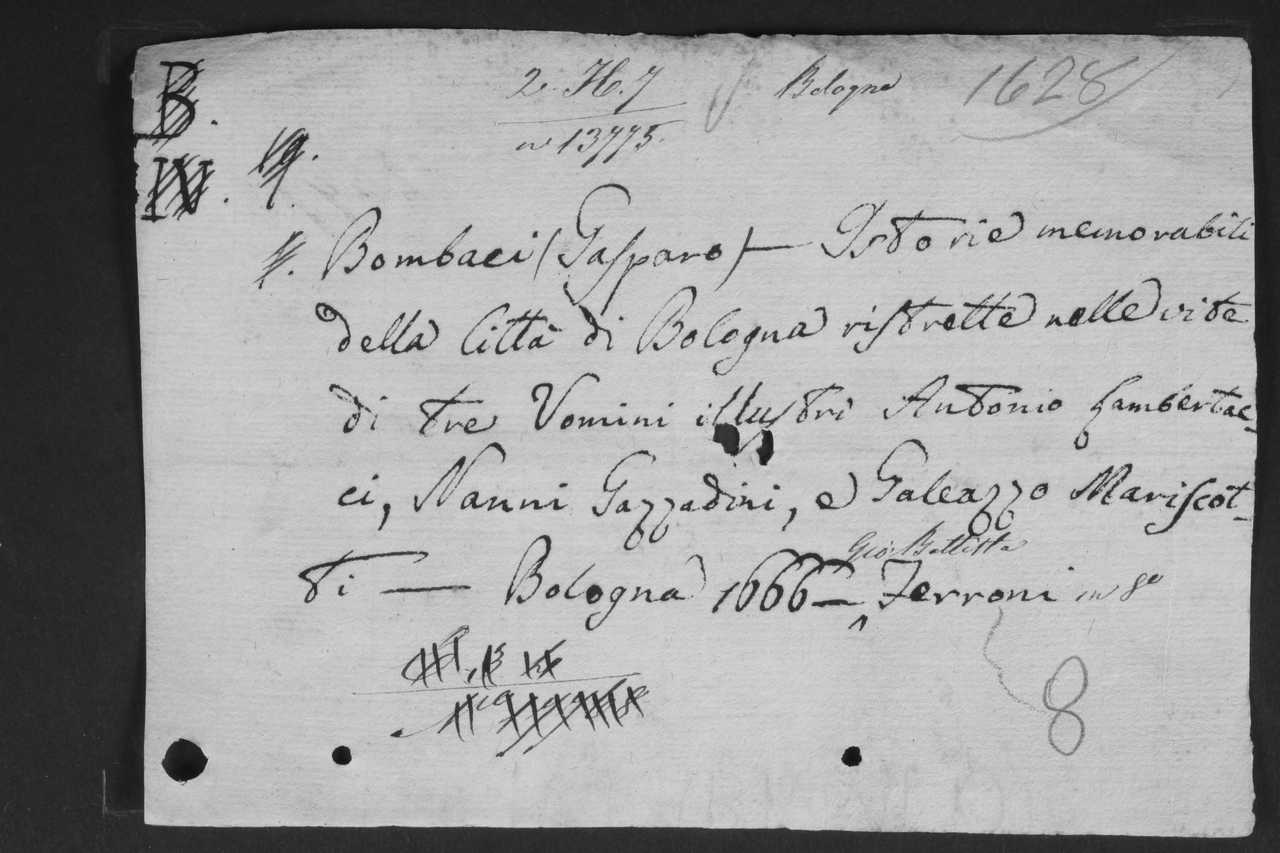 B.
IV.
2. H. 7
n° 13775.
Bologna
1628
Bombaci (Gasparo) — Istorie memorabili
della Città di Bologna ristrette nelle vite
di tre Vomini illustri Antonio Lambertac-
ci, Nanni Gazzadini, e Galeazzo Mariscot-
ti — Bologna 1666 — Gio: Battista Ferroni in 8°
8